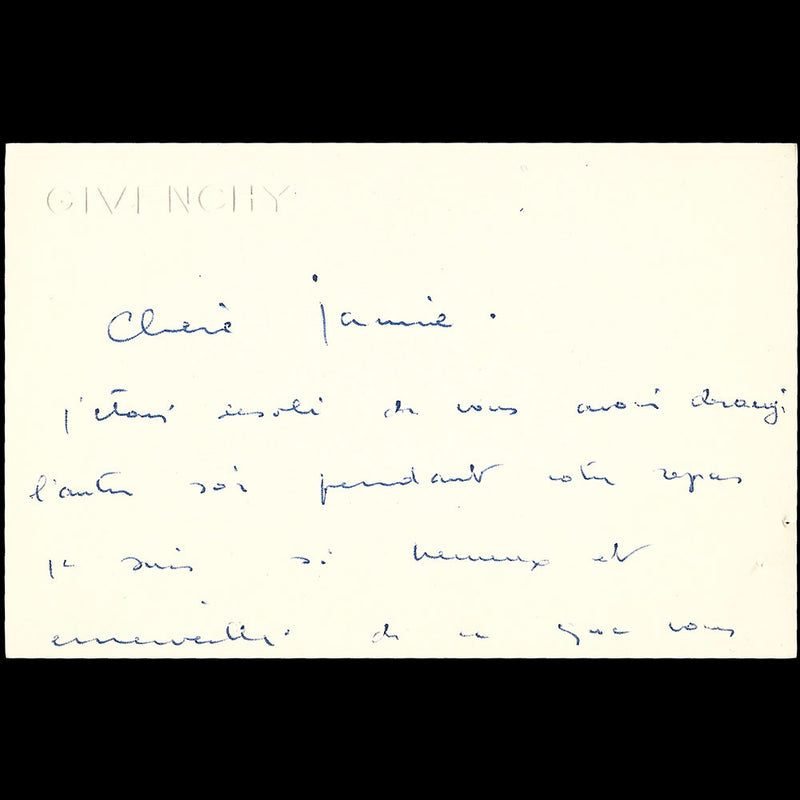 GIVENCHY
Chère Jamie.
j'étais désolé de vous avoir dérangé
l'autre soir pendant votre repas
je suis si heureux et
émerveillé de ce que vous